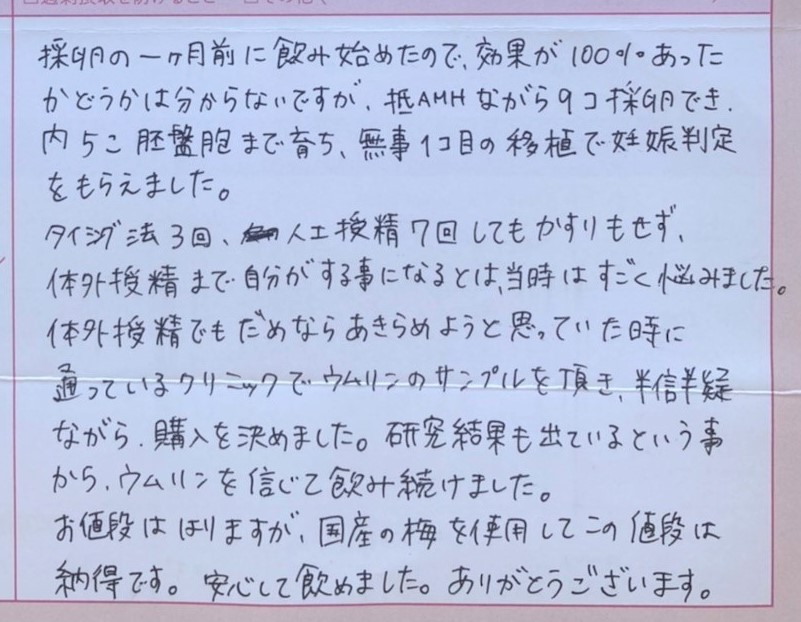 採卵の一ヶ月前に飲み始めたので、効果が100%あった
かどうかは分からないですが、抵AMHながら9コ採卵でき、
内5こ胚盤胞まで育ち、無事1コ目の移植で妊娠判定
をもらえました。
タイミング法3回、人工授精7回してもかすりもせず、
体外授精まで自分がする事になるとは、当時はすごく悩みました。
体外授精でもだめならあきらめようと思っていた時に
通っているクリニックでウムリンのサンプルを頂き、半信半疑
ながら、購入を決めました。研究結果も出ているという事
から、ウムリンを信じて飲み続けました。
お値段ははりますが、国産の梅を使用してこの値段は
納得です。安心して飲めました。ありがとうございます。